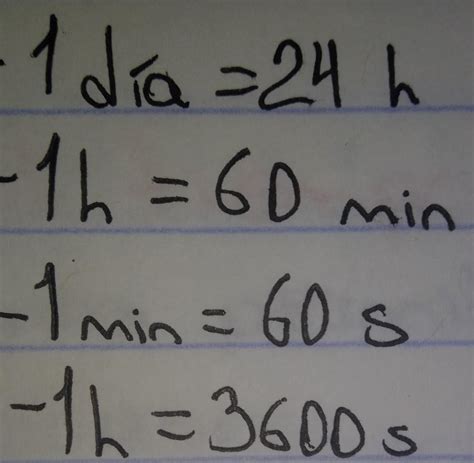 - 1 día = 24 h
- 1h = 60 min
- 1 min = 60 s
- 1h = 3600 s